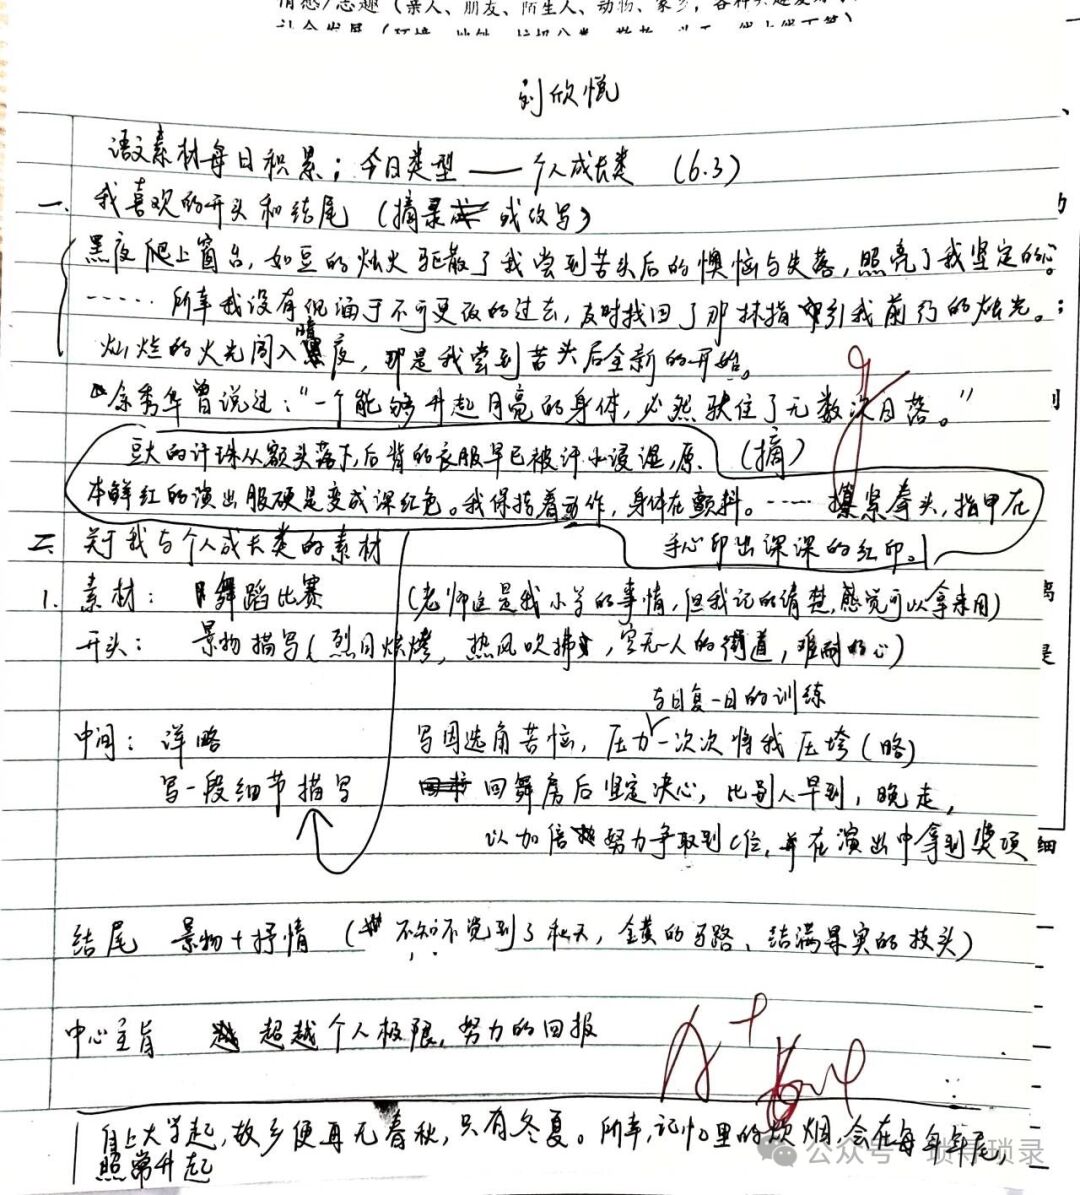 情感/志趣（亲人、朋友、陌生人、动物、家乡，各种
刘欣悦
语文素材每日积累；今日类型——个人成长类 （6.3）
一、我喜欢的开头和结尾（摘录 或改写）
黑夜爬上窗台，如豆的灿火驱散了我尝到苦头后的懊恼与失落，照亮了我坚定的心。
……所幸我没有沉湎于不可更改的过去，及时找回了那抹指引我前行的烛光。
灿烂的火光闯入暗夜，那是我尝到苦头后全新的开始。
余秀华曾说过：“一个能够升起月亮的身体，必然驮住了无数次日落。”
（摘）
豆大的汗珠从额头落下，后背的衣服早已被汗水浸湿，原
本鲜红的演出服硬是变成深红色。我保持着动作，身体在颤抖。……攥紧拳头，指甲在
手心印出深深的红印。
二、关于我与个人成长类的素材
1. 素材： 舞蹈比赛 （老师这是我小学的事情，但我记的清楚，感觉可以拿来用）
开头： 景物描写（烈日烘烤，热风吹拂，空无一人的街道，难耐的心）
与日复一日的训练
中间： 详略 写因选角苦恼，压力一次次将我压垮（略）
写一段细节描写 回舞房后坚定决心，比别人早到，晚走，
以加倍努力争取到C位，并在演出中拿到奖项
细
结尾 景物+抒情（不知不觉到了秋天，金黄的马路、结满果实的枝头）
中心主旨 超越个人极限，努力的回报
A+
自上大学起，故乡便再无春秋，只有冬夏。所幸，记忆里的炊烟，会在每年年尾，
照常升起
公众号·琐寻琐录